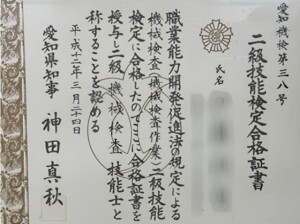 愛知機検第三八号
二級技能検定合格証書
氏名
職業能力開発促進法の規定による
機械検査(機械検査作業)二級技能
検定に合格したのでここに合格証書を
授与し二級機械検査技能士と
称することを認める
平成十二年三月二十四日
愛知県知事 神田真秋